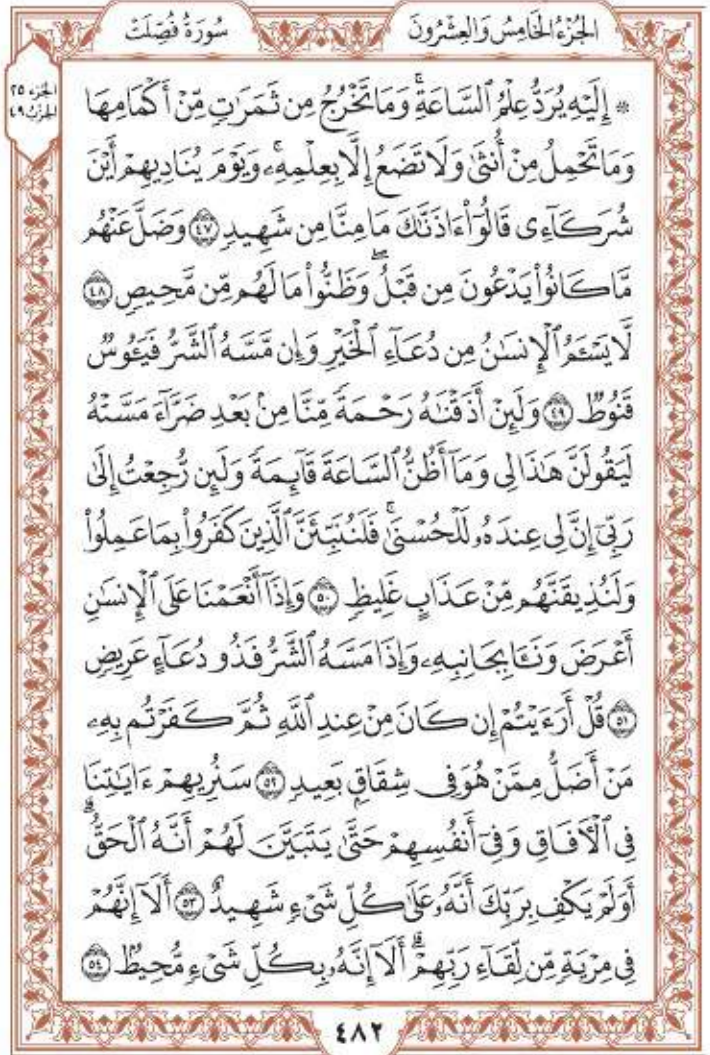 الجُزْءُ الخَامِسُ وَالعِشْرُونَ سُورَةُ فُصِّلَتْ
الجزء ٢٥
الحزب ٤٩
۞ إِلَيْهِ يُرَدُّ عِلْمُ ٱلسَّاعَةِۚ وَمَا تَخْرُجُ مِن ثَمَرَٰتٍ مِّنْ أَكْمَامِهَا
وَمَا تَحْمِلُ مِنْ أُنثَىٰ وَلَا تَضَعُ إِلَّا بِعِلْمِهِۦۚ وَيَوْمَ يُنَادِيهِمْ أَيْنَ
شُرَكَآءِى قَالُوٓا۟ ءَاذَنَّٰكَ مَا مِنَّا مِن شَهِيدٍ ٤٧ وَضَلَّ عَنْهُم
مَّا كَانُوا۟ يَدْعُونَ مِن قَبْلُۖ وَظَنُّوا۟ مَا لَهُم مِّن مَّحِيصٍ ٤٨
لَّا يَسْـَٔمُ ٱلْإِنسَٰنُ مِن دُعَآءِ ٱلْخَيْرِ وَإِن مَّسَّهُ ٱلشَّرُّ فَيَـُٔوسٌ
قَنُوطٌ ٤٩ وَلَئِنْ أَذَقْنَٰهُ رَحْمَةً مِّنَّا مِنۢ بَعْدِ ضَرَّآءَ مَسَّتْهُ
لَيَقُولَنَّ هَٰذَا لِى وَمَآ أَظُنُّ ٱلسَّاعَةَ قَآئِمَةً وَلَئِن رُّجِعْتُ إِلَىٰ
رَبِّىٓ إِنَّ لِى عِندَهُۥ لَلْحُسْنَىٰۚ فَلَنُنَبِّئَنَّ ٱلَّذِينَ كَفَرُوا۟ بِمَا عَمِلُوا۟
وَلَنُذِيقَنَّهُم مِّنْ عَذَابٍ غَلِيظٍ ٥٠ وَإِذَآ أَنْعَمْنَا عَلَى ٱلْإِنسَٰنِ
أَعْرَضَ وَنَـَٔا بِجَانِبِهِۦ وَإِذَا مَسَّهُ ٱلشَّرُّ فَذُو دُعَآءٍ عَرِيضٍ
٥١ قُلْ أَرَءَيْتُمْ إِن كَانَ مِنْ عِندِ ٱللَّهِ ثُمَّ كَفَرْتُم بِهِۦ
مَنْ أَضَلُّ مِمَّنْ هُوَ فِى شِقَاقٍۭ بَعِيدٍ ٥٢ سَنُرِيهِمْ ءَايَٰتِنَا
فِى ٱلْـَٔافَاقِ وَفِىٓ أَنفُسِهِمْ حَتَّىٰ يَتَبَيَّنَ لَهُمْ أَنَّهُ ٱلْحَقُّۗ
أَوَلَمْ يَكْفِ بِرَبِّكَ أَنَّهُۥ عَلَىٰ كُلِّ شَىْءٍ شَهِيدٌ ٥٣ أَلَآ إِنَّهُمْ
فِى مِرْيَةٍ مِّن لِّقَآءِ رَبِّهِمْۗ أَلَآ إِنَّهُۥ بِكُلِّ شَىْءٍ مُّحِيطٌۢ ٥٤
٤٨٢